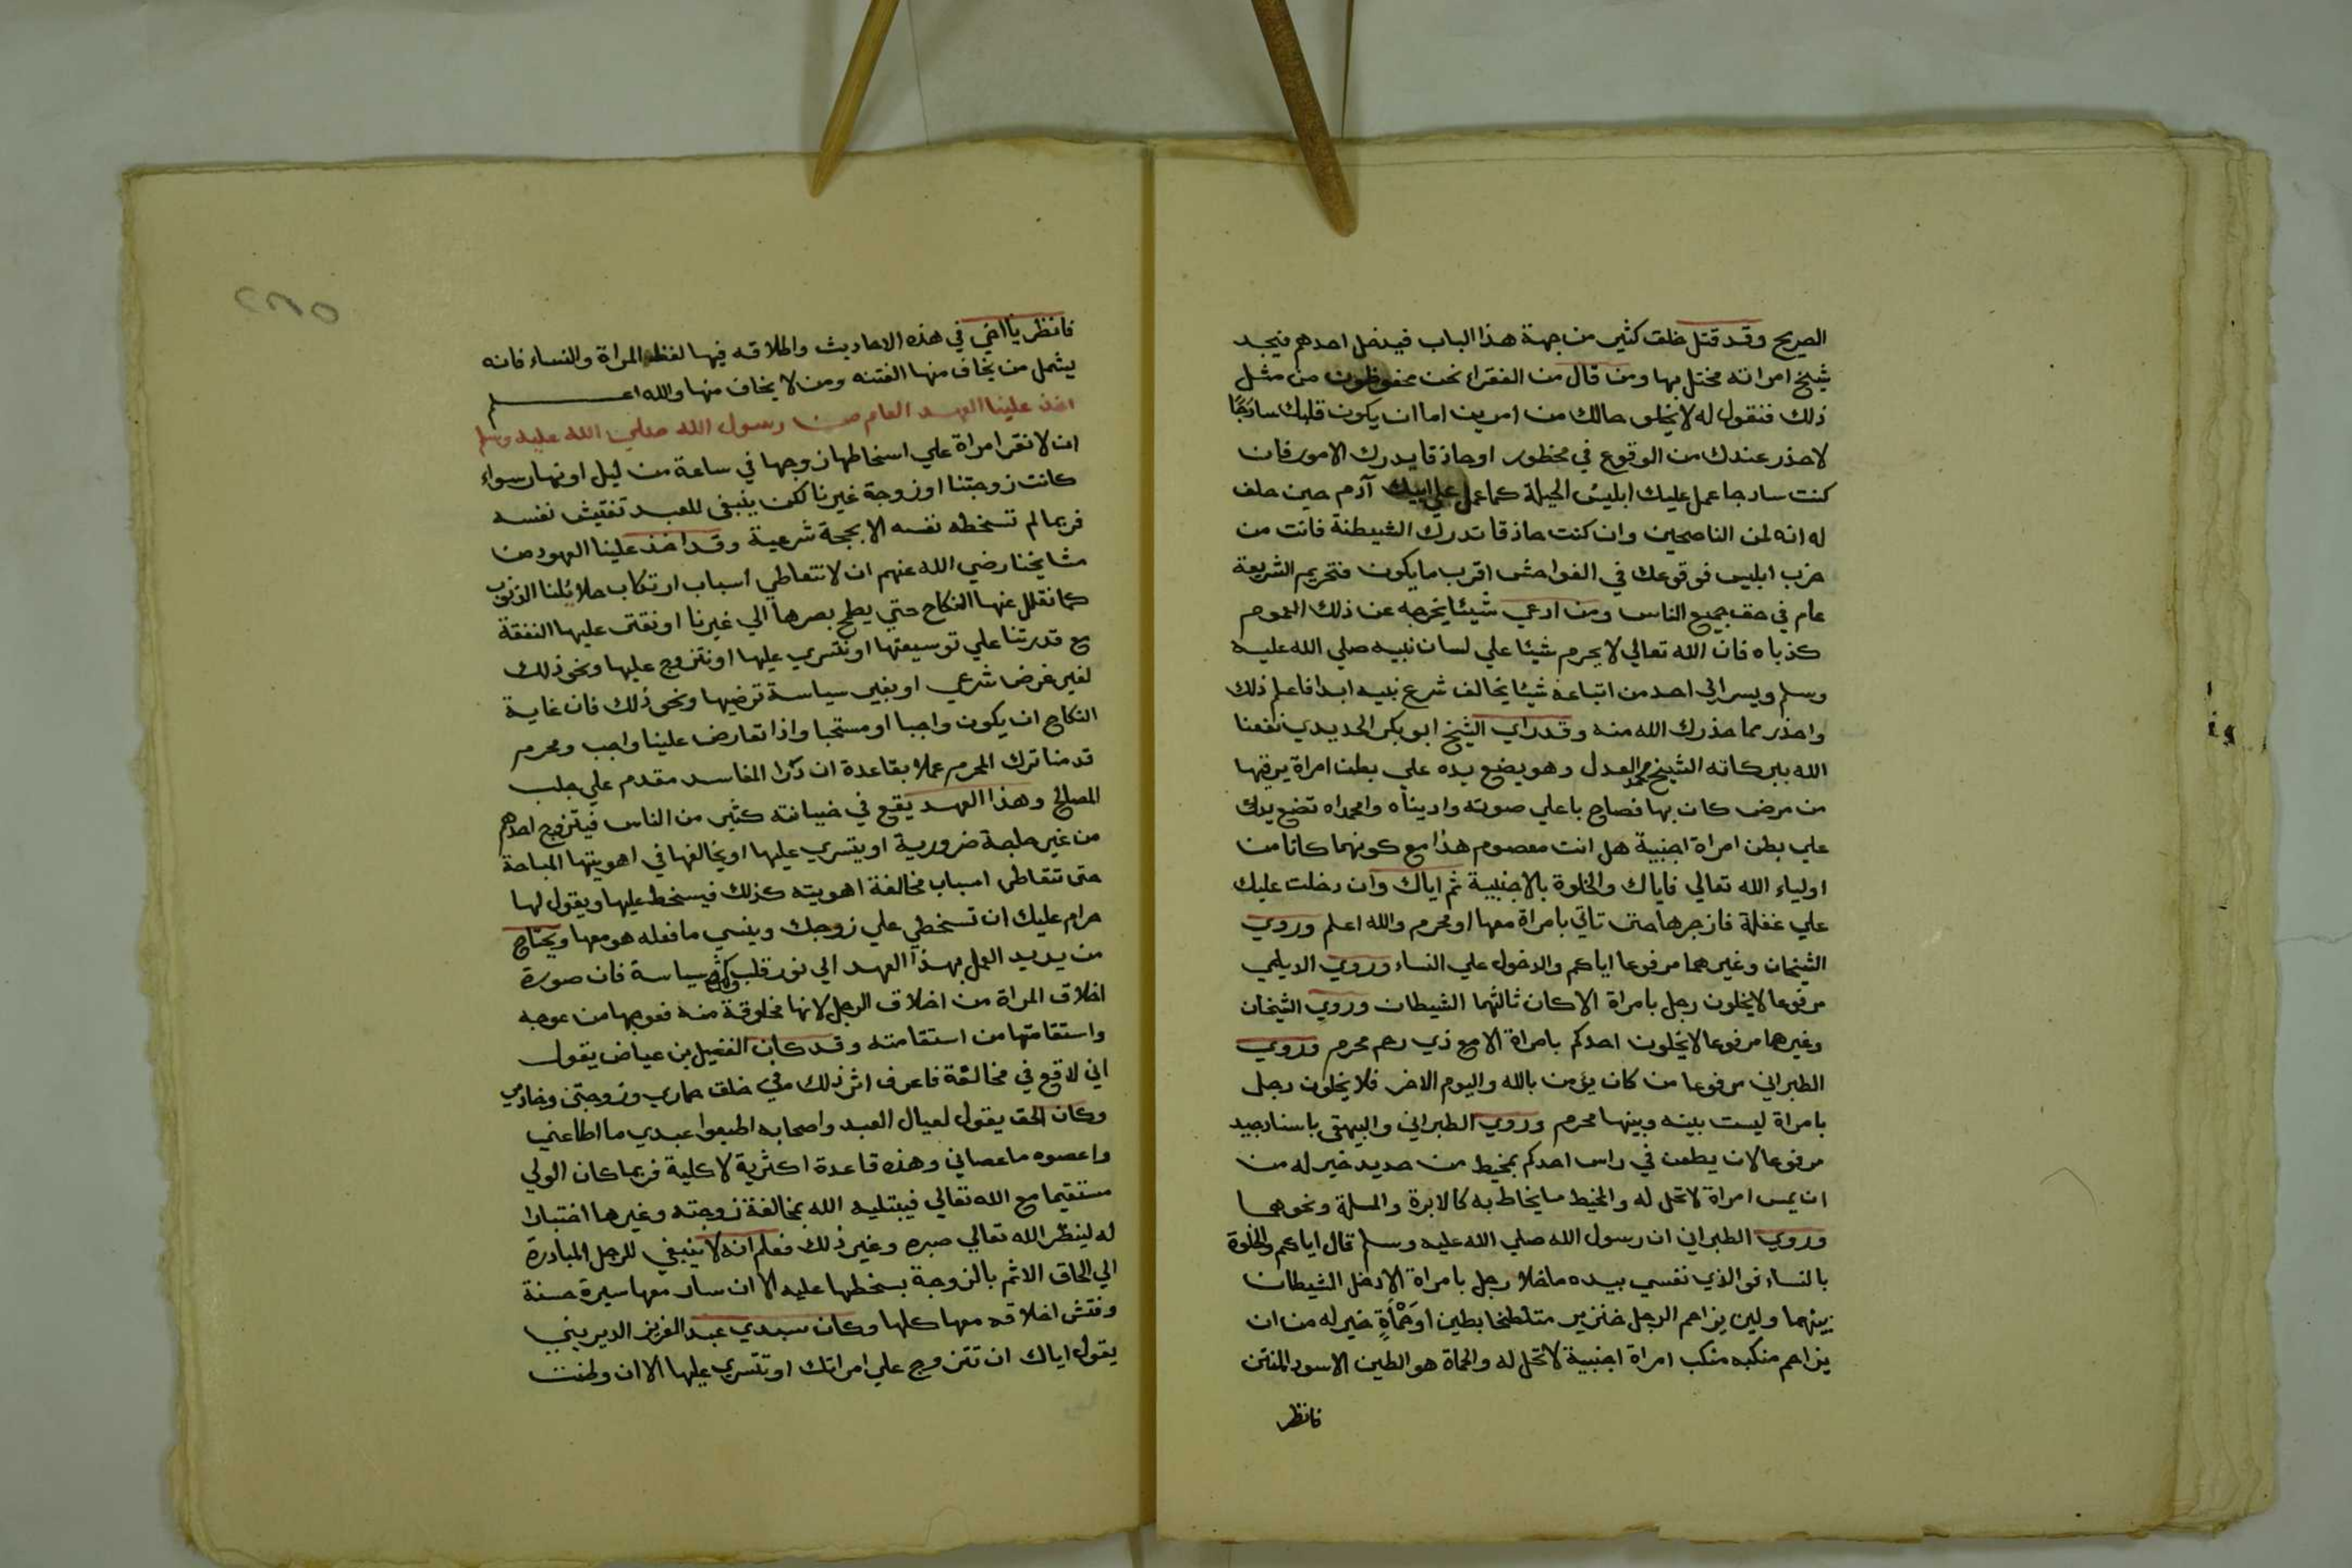 الصريح وقد قتل خلق كثير من جهة هذا الباب فيدخل احدهم فيجد
شيخ امراته مختل بها ومن قال من الفقراء نحن محفوظون من مثل
ذلك فنقول له لا يخلو حالك من امرين اما ان يكون قلبك ساذجًا
لا حذر عندك من الوقوع في محظور او حاذقا يدرك الامور فان
كنت سادجا عمل عليك ابليس الحيلة كما عمل علي ابيك آدم حين حلف
له انه لمن الناصحين وان كنت حاذقا تدرك الشيطنة فانت من
حزب ابليس فوقوعك في الفواحش اقرب ما يكون فتحريم الشريعة
عام في حق جميع الناس ومن ادعي شيئا يخرجه عن ذلك العموم
كذباه فان الله تعالي لا يحرم شيئا علي لسان نبيه صلي الله عليه
وسلم ويسر الي احد من اتباعه شيئا يخالف شرع نبيه ابدا فاعلم ذلك
واحذر مما حذرك الله منه وقد راي الشيخ ابو بكر الحديدي نفعنا
الله ببركاته الشيخ محمد العدل وهو يضع يده علي بطن امراة يرقيها
من مرض كان بها فصاح باعلي صوته واديناه وامحمداه تضع يدك
علي بطن امراة اجنبية هل انت معصوم هذا مع كونهما كانا من
اولياء الله تعالي فاياك والخلوة بالاجنبية ثم اياك وان دخلت عليك
علي غفلة فازجرها حتى تاتي بامراة معها او محرم والله اعلم وروي
الشيخان وغيرهما مرفوعا اياكم والدخول علي النساء وروي الديلمي
مرفوعا لا يخلون رجل بامراة الا كان ثالثهما الشيطان وروي الشيخان
وغيرهما مرفوعا لا يخلون احدكم بامراة الا مع ذي رحم محرم وروي
الطبراني مرفوعا من كان يؤمن بالله واليوم الاخر فلا يخلون رجل
بامراة ليست بينه وبينها محرم وروي الطبراني والبيهقي باسناد جيد
مرفوعا لان يطعن في راس احدكم بمخيط من حديد خير له من
ان يمس امراة لا تحل له والمخيط ما يخاط به كالابرة والمسلة ونحوهما
وروي الطبراني ان رسول الله صلي الله عليه وسلم قال اياكم والخلوة
بالنساء فوالذي نفسي بيده ما خلا رجل بامراة الا دخل الشيطان
بينهما ولين يزاحم الرجل خنزير متلطخا بطين او حَمْأَةٍ خير له من ان
يزاحم منكبه منكب امراة اجنبية لا تحل له والحماة هو الطين الاسود المنتن
فانظر
٢٨٥
فانظر يا اخي في هذه الاحاديث واطلاقه فيها لفظ المراة والنساء فانه
يشمل من يخاف منها الفتنه ومن لا يخاف منها والله اعلم
اخذ علينا العهد العام من رسول الله صلي الله عليه وسلم
ان لا نقر امراة علي اسخاطها زوجها في ساعة من ليل او نهار سواء
كانت زوجتنا او زوجة غيرنا لكن ينبغي للعبد تفتيش نفسه
فربما لم تسخطه نفسه الا بحجة شرعية وقد اخذ علينا العهود من
مشايخنا رضي الله عنهم ان لا نتعاطي اسباب ارتكاب حلائلنا الذنوب
كما نقلل عنها النكاح حتي يطمح بصرها الي غيرنا او نقتر عليها النفقة
مع قدرتنا علي توسيعتها او نتسري عليها او نتزوج عليها ونحو ذلك
لغير غرض شرعي او بغير سياسة ترضيها ونحو ذلك فان غاية
النكاح ان يكون واجبا او مستحبا واذا تعارض علينا واجب ومحرم
قدمنا ترك المحرم عملا بقاعدة ان درا المفاسد مقدم علي جلب
المصالح وهذا العهد يقع في خيانته كثير من الناس فيتزوج احدهم
من غير حاجة ضرورية او يتسري عليها او يخالفها في اهويتها المباحة
حتى تتعاطي اسباب مخالفة اهويته كذلك فيسخط عليها ويقول لها
حرام عليك ان تسخطي علي زوجك وينسي ما فعله هو معها ويحتاج
من يريد العمل بهذا العهد الي نور قلب وكثرة سياسة فان صورة
اخلاق المراة من اخلاق الرجل لانها مخلوقة منه فعوجها من عوجه
واستقامتها من استقامته وقد كان الفضيل بن عياض يقول
اني لاقع في مخالفة فاعرف اثر ذلك في خلق حماري وزوجتي وخادمي
وكان الحق يقول لعيال العبد واصحابه اطيعوا عبدي ما اطاعني
واعصوه ما عصاني وهذه قاعدة اكثرية لا كلية فربما كان الولي
مستقيما مع الله تعالي فيبتليه الله بمخالفة زوجته وغيرها اختبارا
له لينظر الله تعالي صبره وغير ذلك فعلم انه لا ينبغي للرجل المبادرة
الي الحاق الاثم بالزوجة بسخطها عليه الا ان سار معها سيرة حسنة
وفتش اخلاقه معها كلها وكان سيدي عبد العزيز الديريني
يقول اياك ان تتزوج علي امراتك او تتسري عليها الا ان وطنت